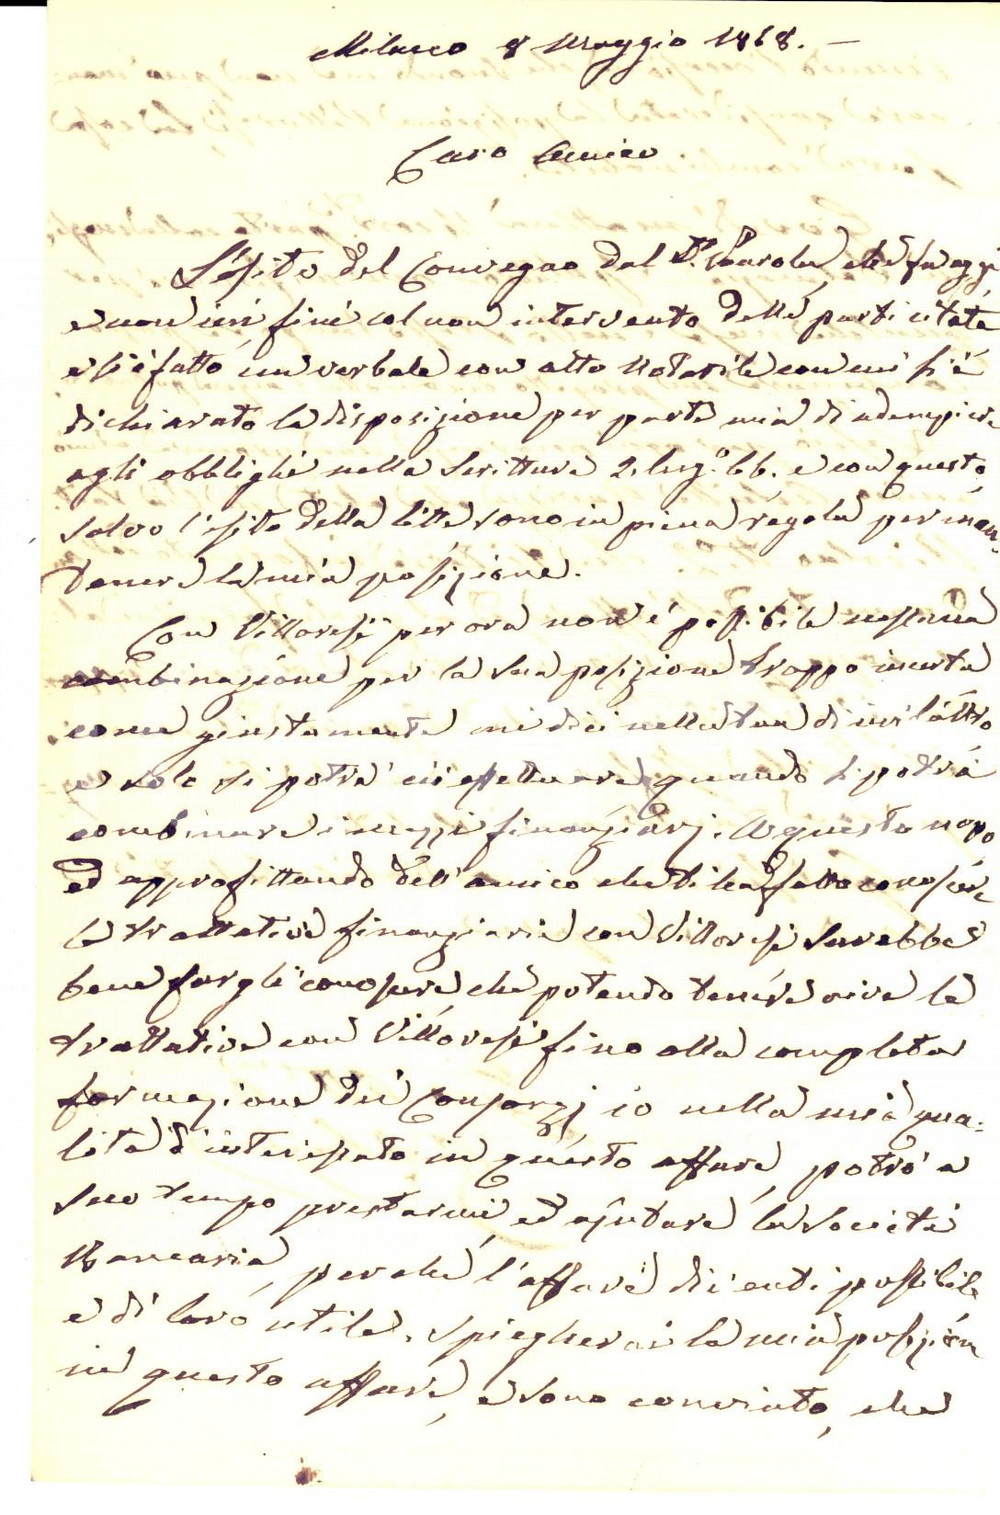 Milano 8 Maggio 1868. —
Caro Amico
L'esito del Convegno dal Dr. Parola, che fu oggi
e non ieri finì col non intervento delle parti citate
e si è fatto un verbale con atto Notarile con cui si è
dichiarato la disposizione per parte mia di adempiere
agli obblighi nella Scrittura 2. lugo. 66. e con questo,
salvo l'esito della lite sono in piena regola per man-
tenere la mia posizione.
Con Villoresi per ora non è possibile nessuna
combinazione per la sua posizione troppo incerta
come giustamente mi dici nella tua di ier l'altro
e solo si potrà ciò effettuare quando si potrà
combinare i mezzi finanziarj. A questo uopo
ed approfittando dell'amico che ti ha fatto conoscere
le trattative finanziarie con Villoresi sarebbe
bene fargli conoscere che potendo tenere vive le
trattative con Villoresi fino alla completa
formazione dei Consorzj io nella mia qua-
lità d'interessato in questo affare, potrò a
suo tempo prestarmi ed ajutare la Società
Bancaria, perché l'affare diventi possibile
e di loro utile. Spiegherai la mia posizion
in questo affare, e sono convinto, che